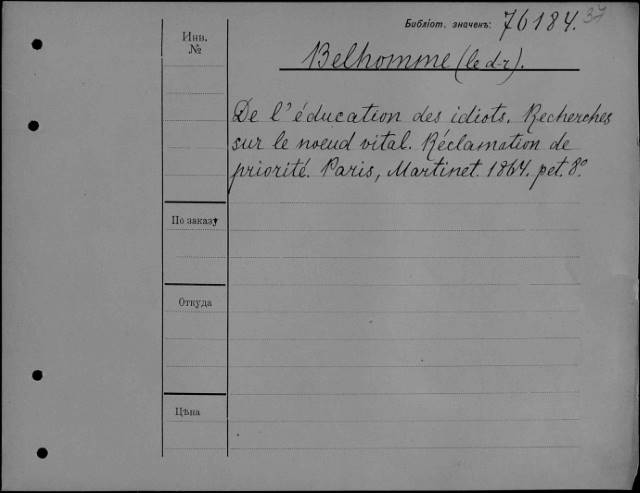 Библіот. значекъ: 76184. 37
Инв.
№
Belhomme (le d-r).
De l'éducation des idiots. Recherches
sur le noeud vital. Réclamation de
priorité. Paris, Martinet. 1864. pet. 8º
По заказу
Откуда
Цѣна